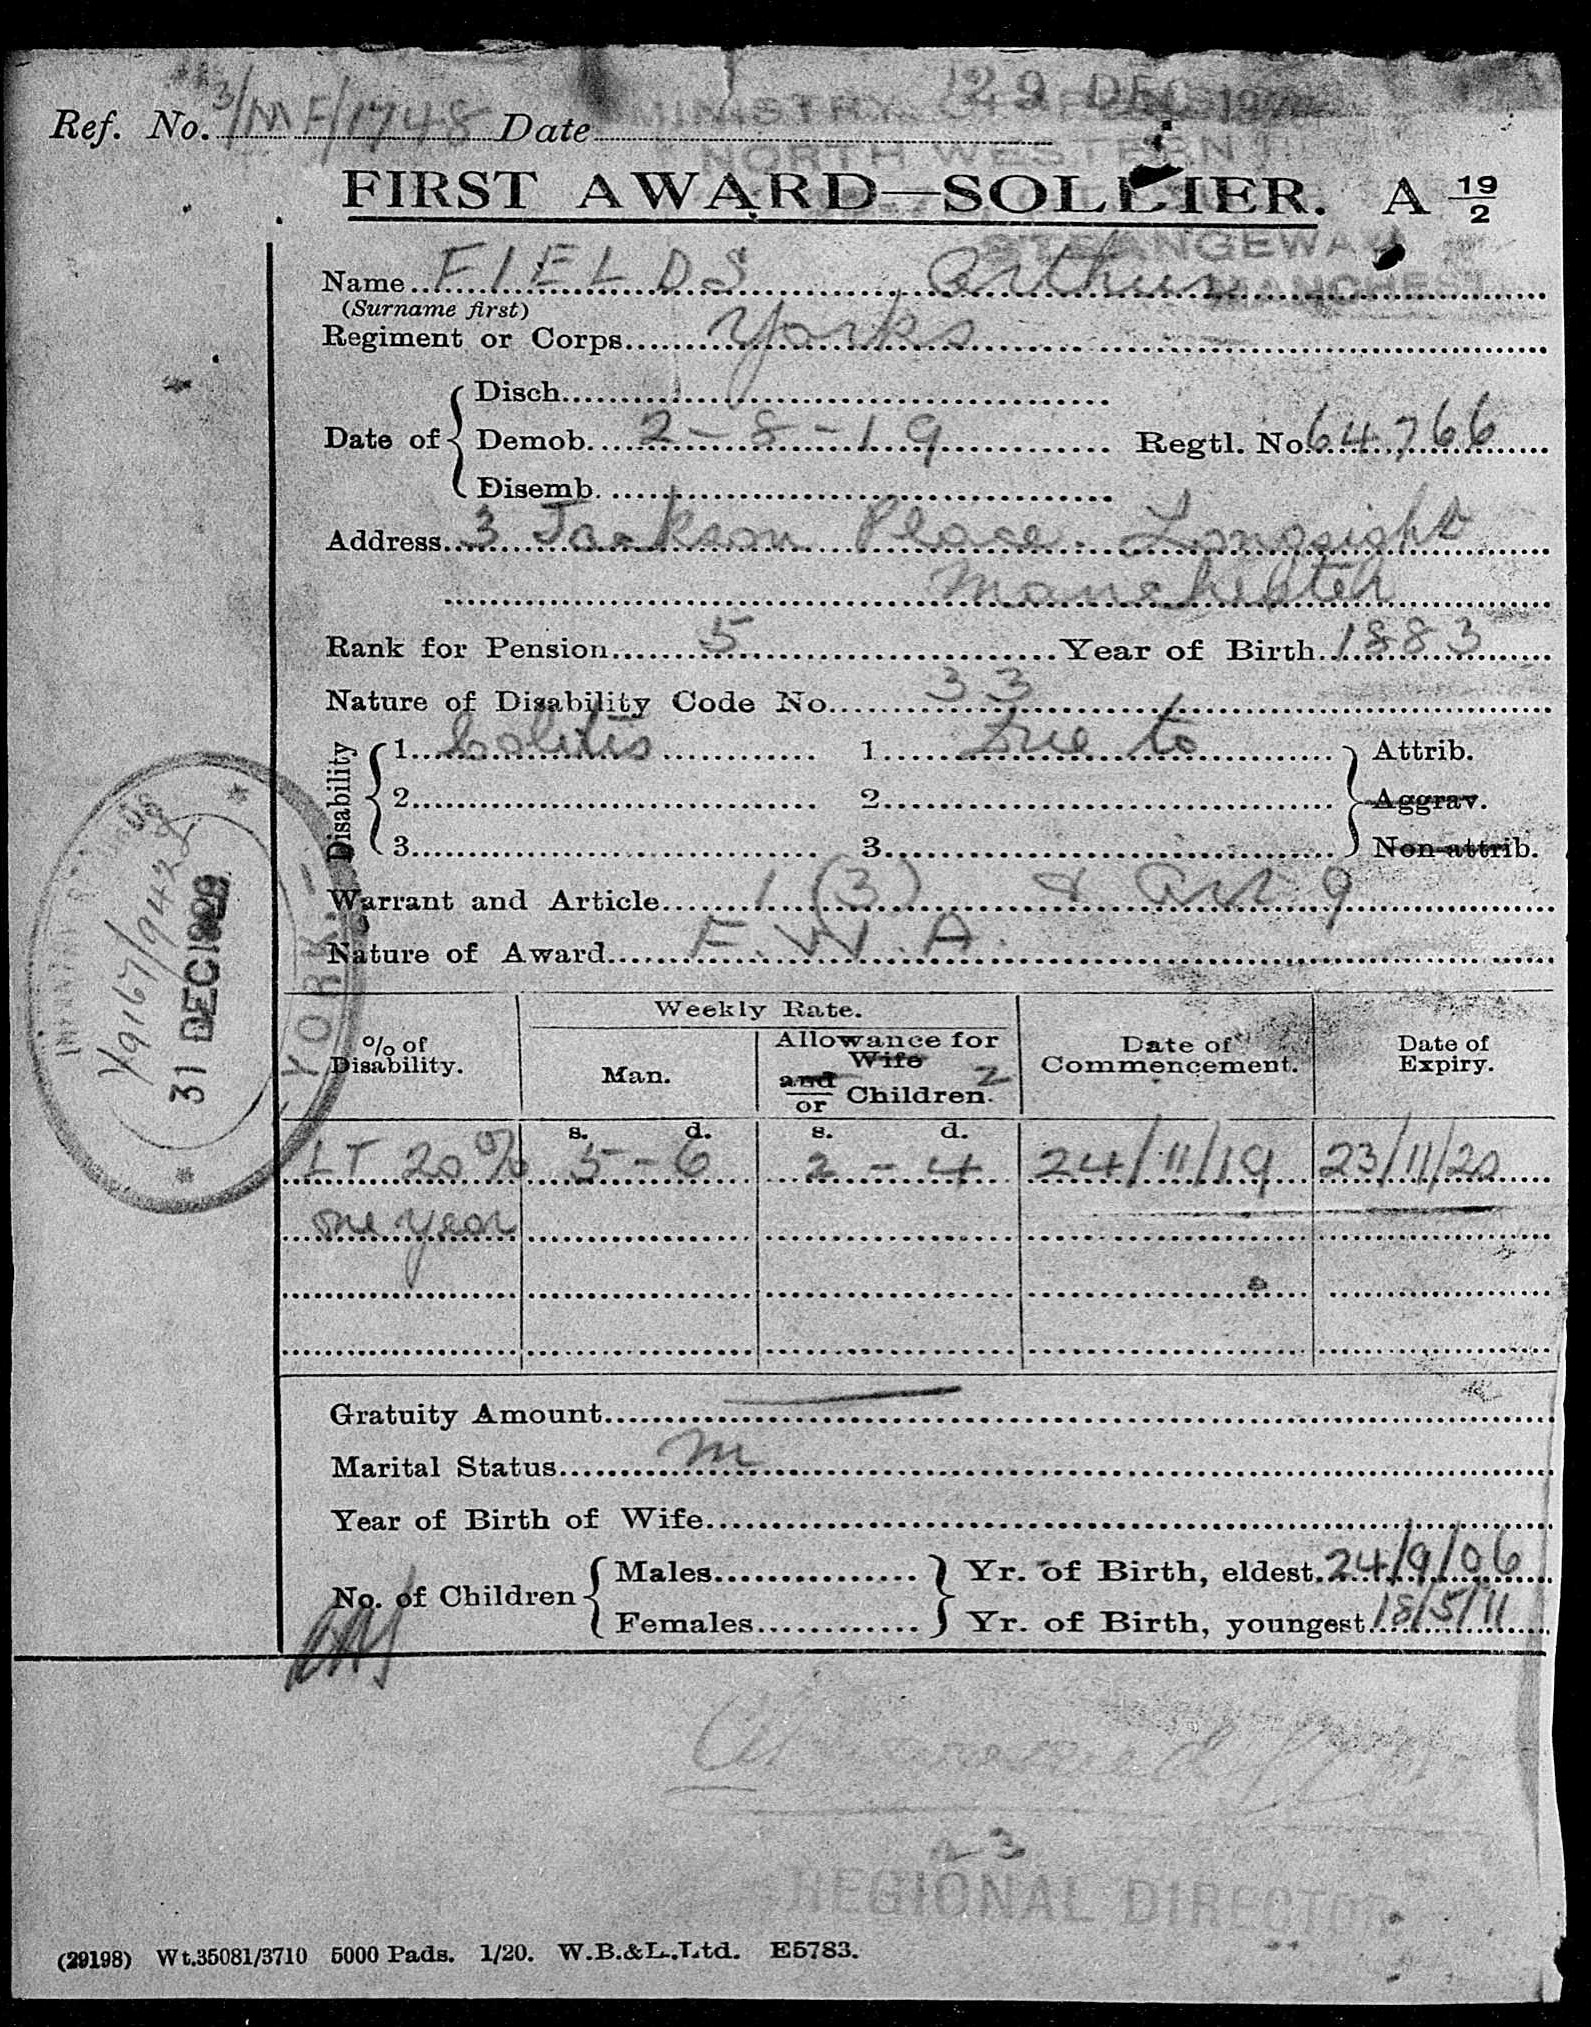 29 DEC
MINISTRY OF PENSIONS
NORTH WESTERN
STRANGEWAY
MANCHEST
Ref. No. 3/MF/1748 Date
FIRST AWARD—SOLDIER. A 19/2
Name FIELDS Arthur
(Surname first)
Regiment or Corps Yorks
Disch.
Date of Demob. 2-8-19 Regtl. No. 64766
Disemb.
Address 3 Jackson Place. Longsight
Manchester
Rank for Pension 5 Year of Birth 1883
Nature of Disability Code No. 33
Disability 1. Colitis 1. Due to Attrib.
2. 2. Aggrav.
3. 3. Non-attrib.
Warrant and Article 1 (3) & Art 9
Nature of Award F.W.A.
% of Disability. Weekly Rate. Date of Commencement. Date of Expiry.
Man. Allowance for Wife and/or Children. 2
s. d. s. d.
LT 20% 5-6 2-4 24/11/19 23/11/20
one year
Gratuity Amount
Marital Status M
Year of Birth of Wife
No. of Children Males Yr. of Birth, eldest 24/9/06
Females Yr. of Birth, youngest 18/5/11
YORK
31 DEC
23
REGIONAL DIRECTOR
(29198) Wt.35081/3710 5000 Pads. 1/20. W.B.&L.Ltd. E5783.